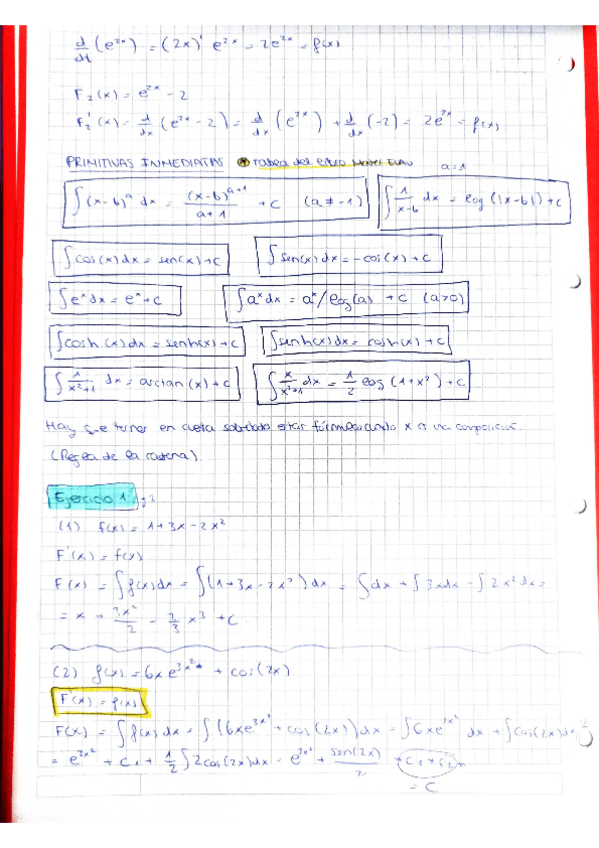 d/dt (e^2x) = (2x)' e^2x = 2e^2x = f(x)
F₂(x) = e^2x - 2
F₂'(x) = d/dx (e^2x - 2) = d/dx (e^2x) + d/dx (-2) = 2e^2x = f(x)
PRIMITIVAS INMEDIATAS
a=1
∫(x-b)^a dx = (x-b)^(a+1)/(a+1) + c (a ≠ -1) ∫ 1/(x-b) dx = log(|x-b|) + c
∫cos(x)dx = sen(x) + c ∫sen(x)dx = -cos(x) + c
∫e^x dx = e^x + c ∫a^x dx = a^x/log(a) + c (a>0)
∫cosh(x)dx = senh(x) + c ∫senh(x)dx = cosh(x) + c
∫ 1/(x²+1) dx = arctan(x) + c ∫ x/(x²+1) dx = 1/2 log(1+x²) + c
Hay que tener en cuenta x
(Regla de la cadena).
Ejercicio 1
(1) f(x) = 1+3x-2x²
F'(x) = f(x)
F(x) = ∫f(x)dx = ∫(1+3x-2x²)dx = ∫dx + ∫3xdx - ∫2x²dx =
= x + 3x²/2 - 2/3 x³ + C
(2) f(x) = 6xe^3x² + cos(2x)
F'(x) = f(x)
F(x) = ∫f(x)dx = ∫(6xe^3x² + cos(2x))dx = ∫6xe^3x² dx + ∫cos(2x)dx =
= e^3x² + C₁ + 1/2 ∫2cos(2x)dx = e^3x² + sen(2x)/2 + C₁+C₂
= C